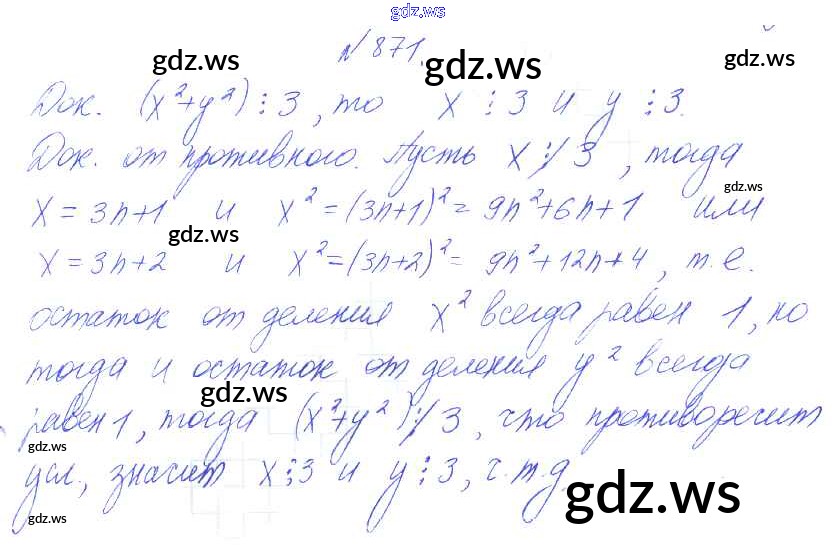 gdz.ws
N 871.
gdz.ws gdz.ws gdz.ws
Док. (x²+y²)⋮3, то x⋮3 и y⋮3.
Док. от противного. Пусть x⋮̸3, тогда
gdz.ws
x=3n+1 и x²=(3n+1)²=9n²+6n+1 или
gdz.ws
x=3n+2 и x²=(3n+2)²=9n²+12n+4, т.е.
остаток от деления x² всегда равен 1, но
тогда и остаток от деления y² всегда
gdz.ws
равен 1, тогда (x²+y²)⋮̸3, что противоречит
gdz.ws
усл., значит x⋮3 и y⋮3, ч.т.д.
gdz.ws
gdz.ws